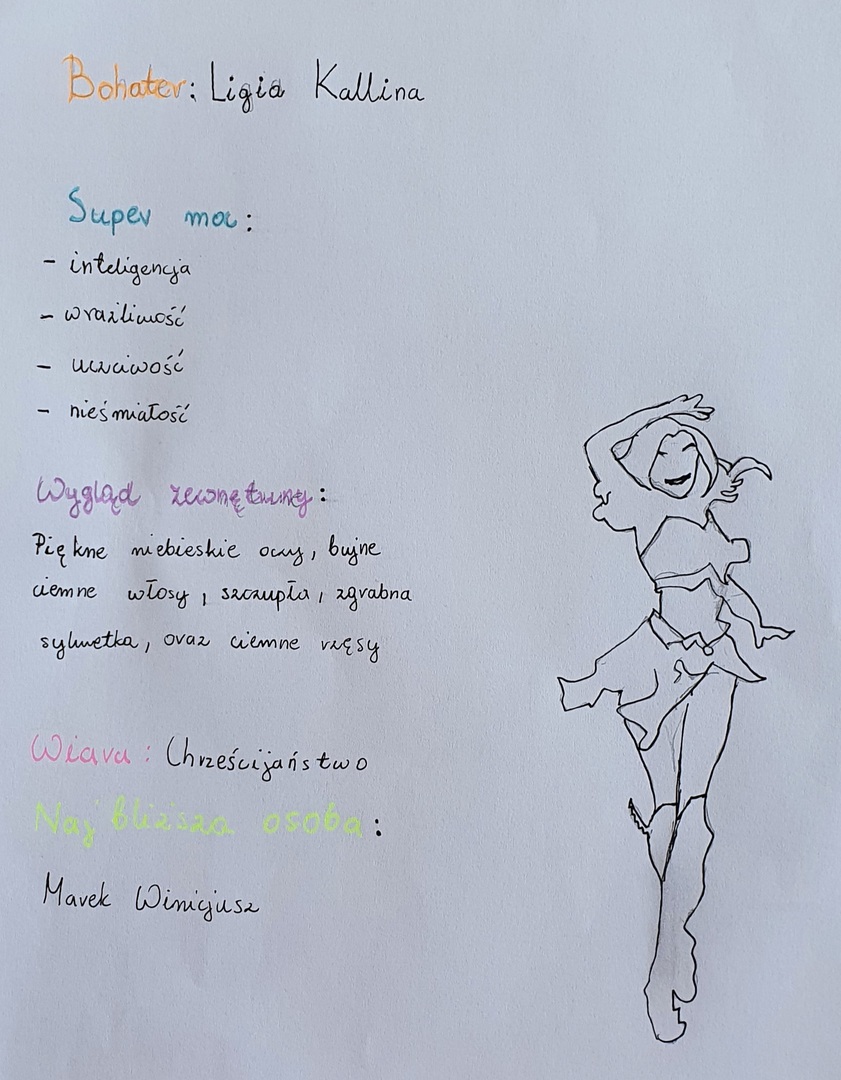 Bohater: Ligia Kallina
Super moc:
- inteligencja
- wrażliwość
- uczciwość
- nieśmiałość
Wygląd zewnętrzny:
Piękne niebieskie oczy, bujne
ciemne włosy, szczupła, zgrabna
sylwetka, oraz ciemne rzęsy
Wiara: Chrześcijaństwo
Najbliższa osoba:
Marek Winicjusz